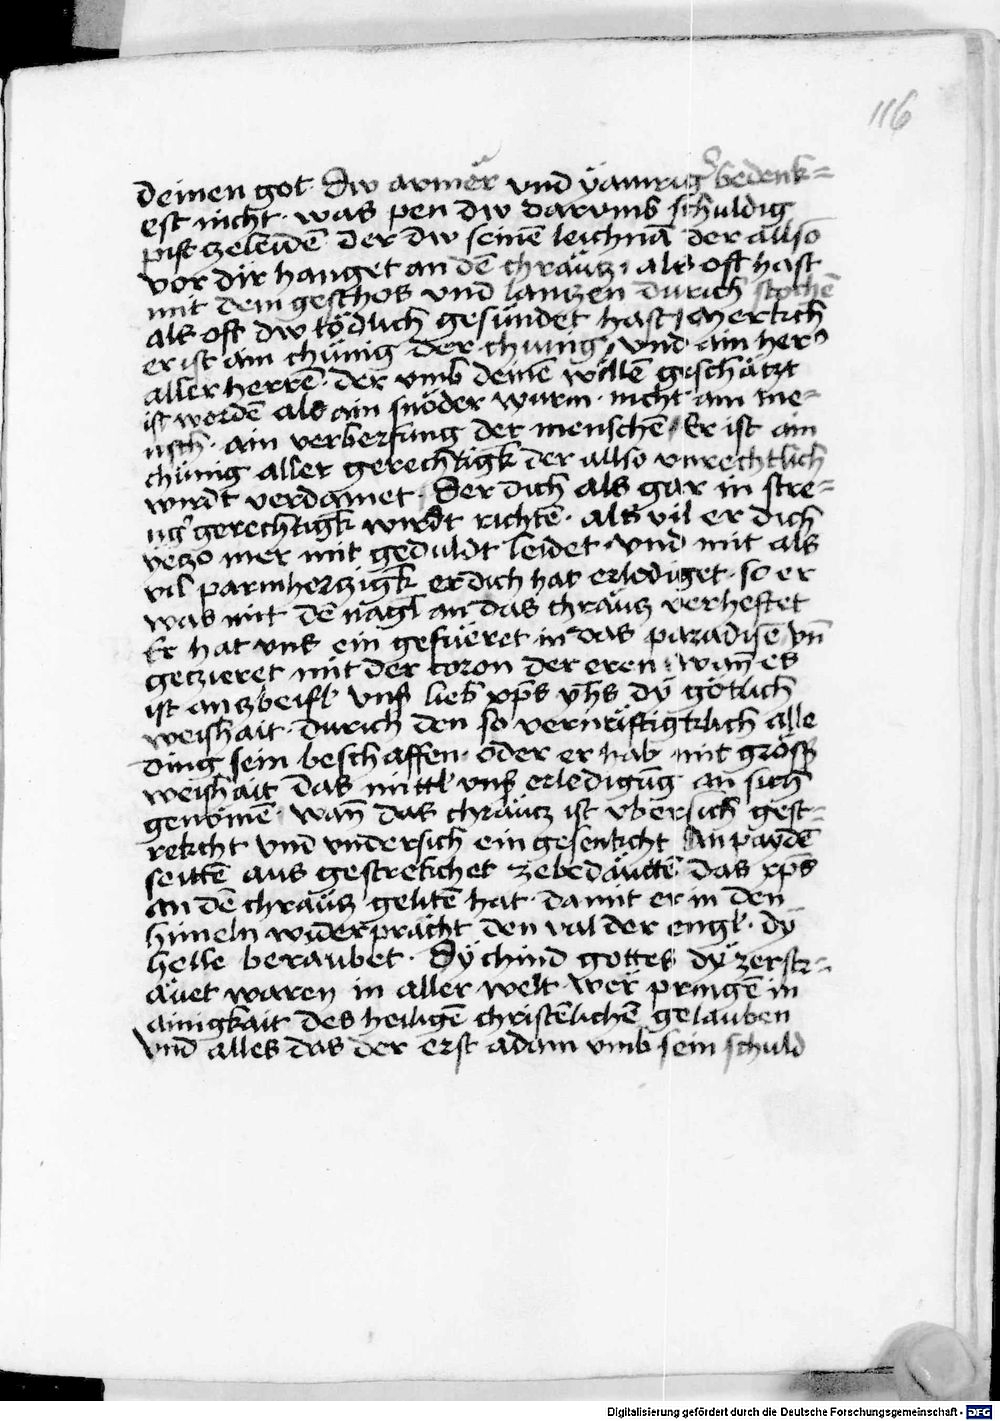 116
deinen got · Dw armer vnd yamrig̾ bedenk=
est nicht · was pen dw darumb schuldig
pist zeleidē der dw seinē leichnā der allso
vor dir hanget an dē chräutz · als oft hast
mit dem geschos vnd lantzen durich stochē
als oft dw tödlich gesündet hast / Merkch
er ist ain chünig der chünig / vnd ain her
aller herrē · der vmb deinē willē geschätzt
ist wordē als ain snöder wurm · nicht ain me=
nsch · ain verberfung der menschē / Er ist ain
chünig aller gerechtigk der allso vnrechtlich
wirdt verdamet · Der dich als gar in stre=
ng̾ gerechtigk wirdt richtē · als vil er dich
yeczo mer mit geduldt leidet · vnd mit als
vil parmherczigk er dich hat erlediget · so er
was mit dē nagl an das chräutz verheftet
Er hat vns ein gefüeret in das paradisē vn̄
geczieret mit der coron der eren · wan̄ es
ist an zbeifl vnser lieb xp̄s yh̄s dy götlich
weishait · durich den so vernüftigklich alle
ding sein beschaffen · oder er hab mit gröss̾
weishait das mittl vnser erledigūg an sich
genomē · wan̄ das chräutz ist vbersich gest=
rekcht vnd vndersich ein gesenkcht An paydē
seittē aus gestrekchet zebedäuttē das xp̄s
an dē chräutz gelitē hat · damit er in den
himeln widerpracht den val der engl · dy
helle beraubet · Dy chind gottes dy zerstr=
äuet waren in aller welt wer pringē in
ainigkait des heiligē christēlichē gelauben
vnd alles das der erst adam vmb sein schuld
Digitalisierung gefördert durch die Deutsche Forschungsgemeinschaft - DFG